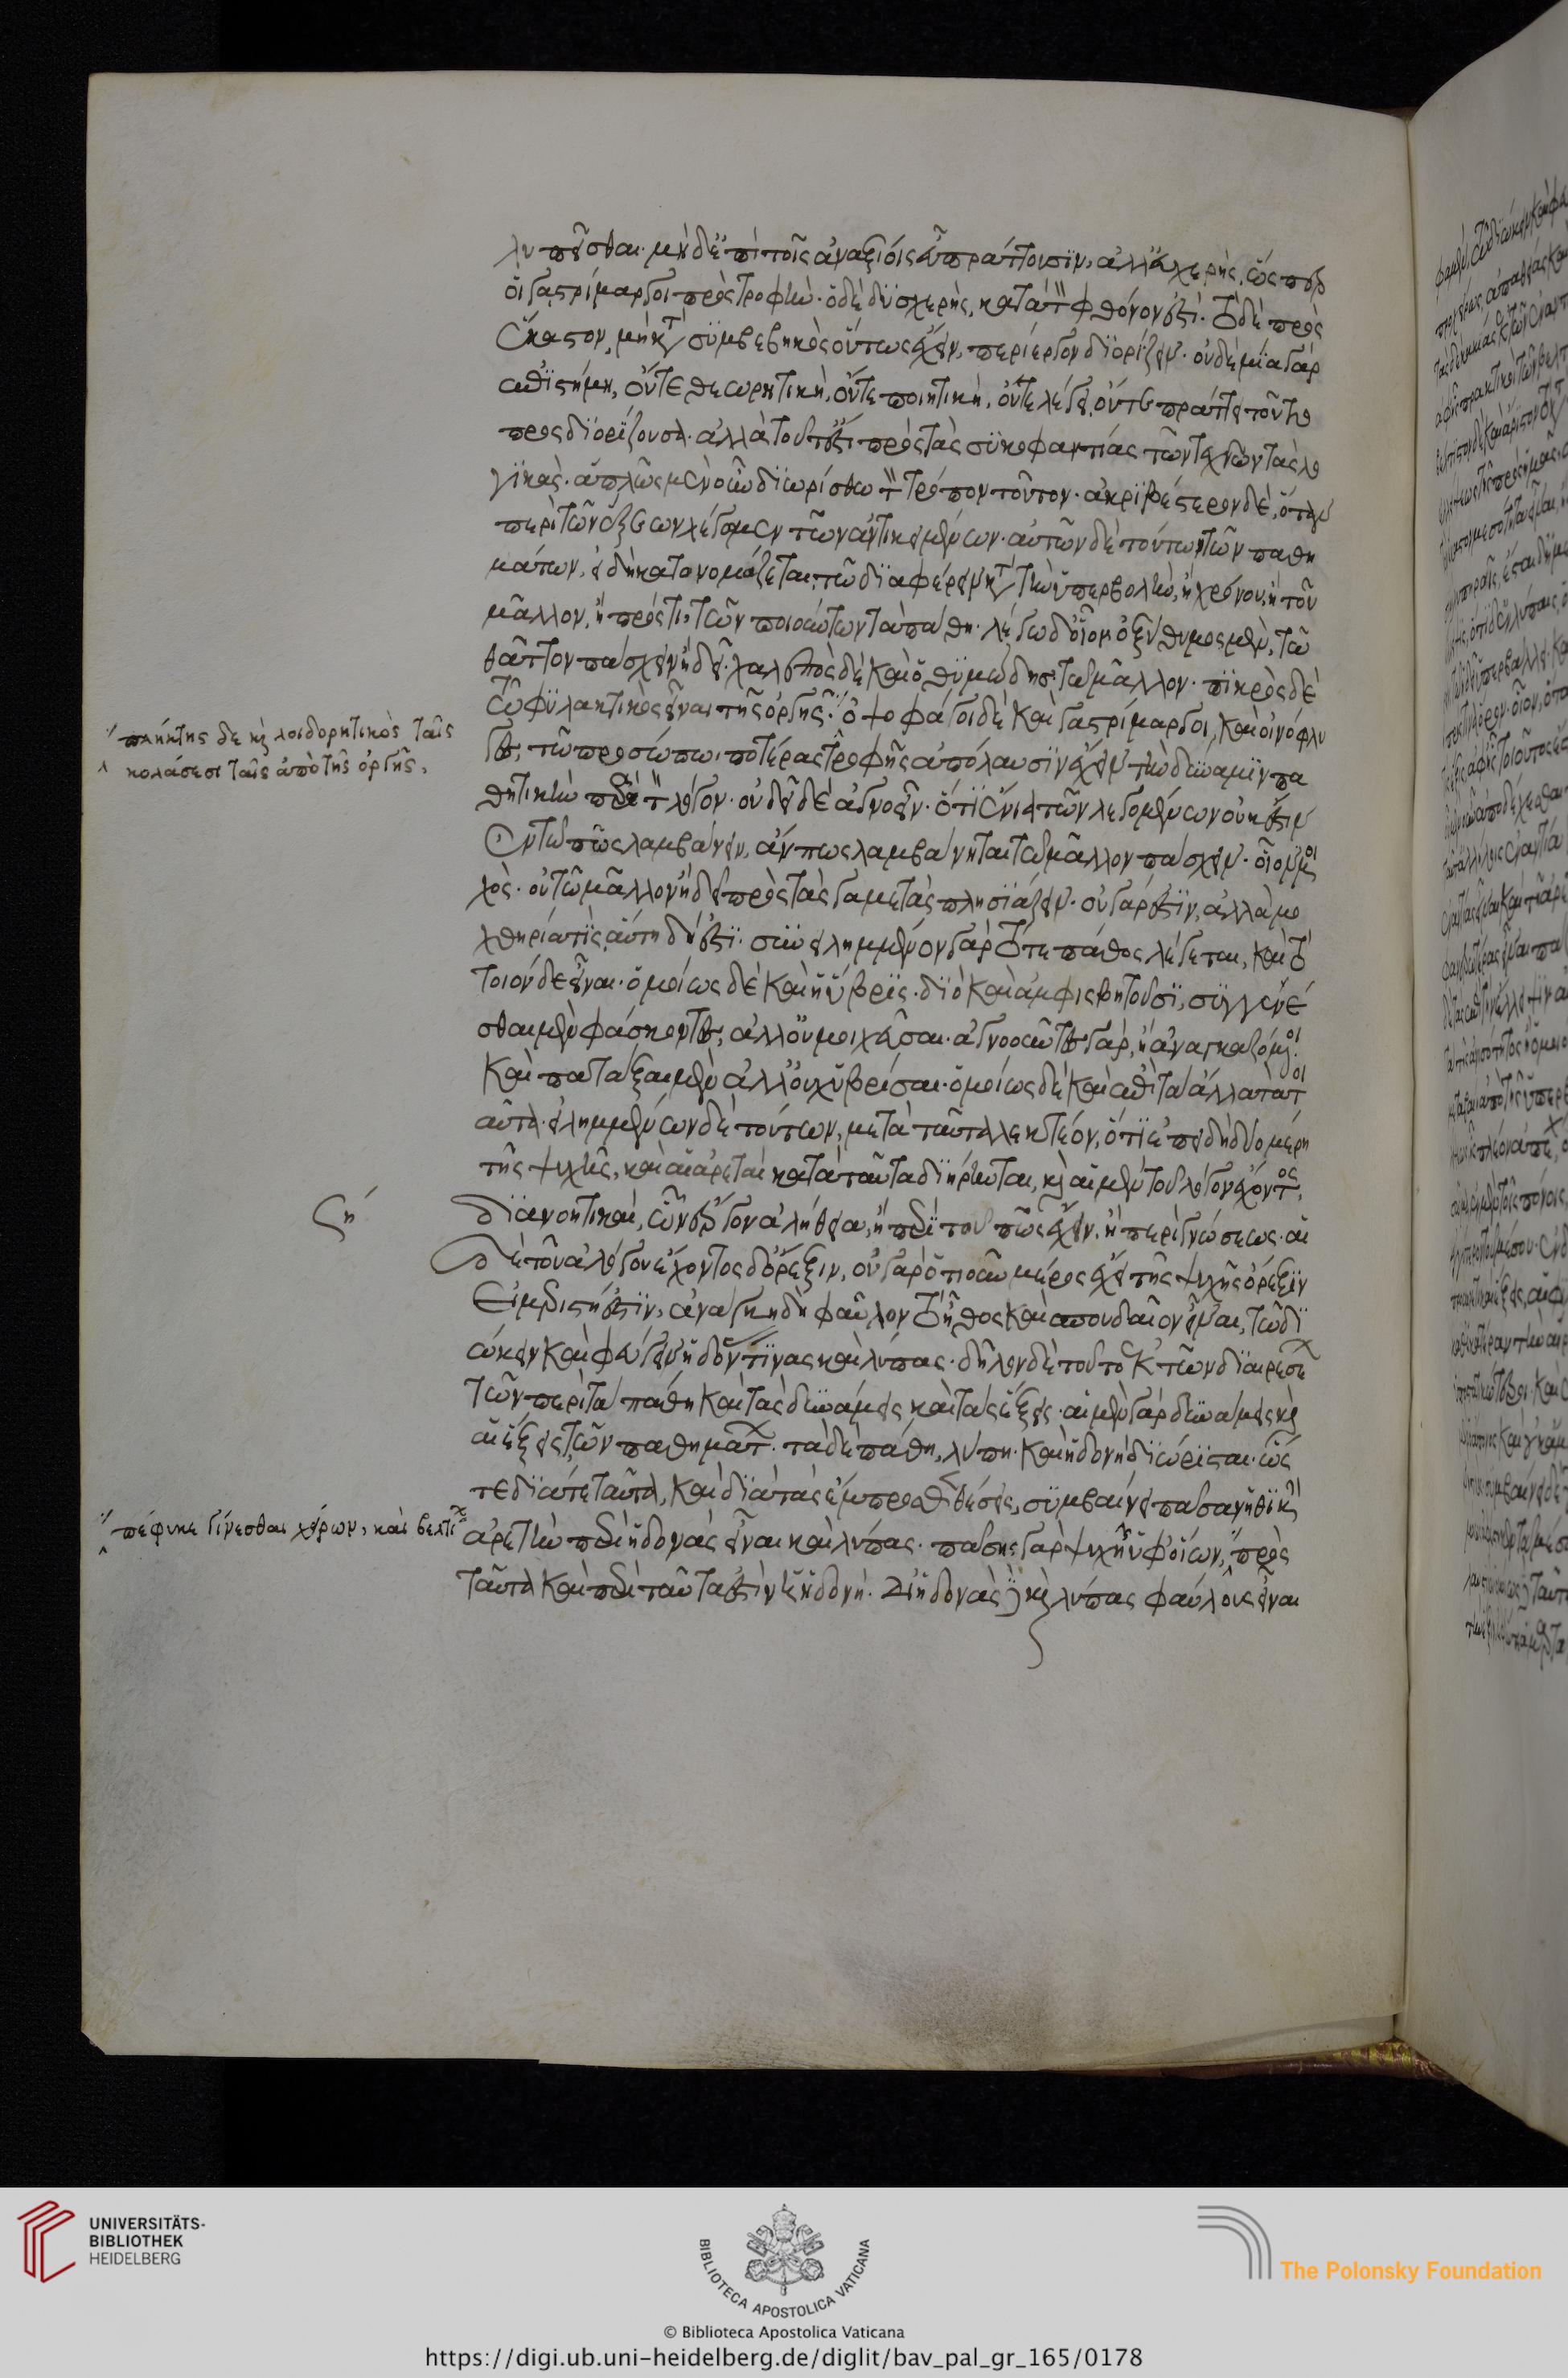 λυπεῖσθαι· μὴδἐπὶ τοῖς ἀναξίοις εὖ πράττουσιν, ἀλλ' εὐχερὴς, ὥσπερ
οἱ γαστρίμαργοι πρὸς τροφὴν· ὁ δὲ δυσχερὴς, κατὰ τὸν φθόνον ἐστί· τὸ δὲ πρὸς
ἕκαστον, μὴ κατὰ συμβεβηκὸς οὕτως ἔχειν, περίεργον διορίζειν· οὐδὲ μία γάρ
ἐπιστήμη, οὔτε θεωρητικὴ, οὔτε ποιητικὴ, οὔτε λέγει, οὔτε πράττει τοῦτο
προσδιορίζουσα· ἀλλὰ τοῦτ' ἐστι πρὸς τὰς συκοφαντίας τῶν τεχνῶν τὰς λο
γικὰς· ἁπλῶς μὲν οὖν διωρίσθω τὸν τρόπον τοῦτον· ἀκριβέστερον δὲ, ὅταν
περὶ τῶν ἕξεων λέγομεν τῶν ἀντικειμένων· αὐτῶν δὲ τούτων τῶν παθη
μάτων, εἴδη κατονομάζεται, τῶ διαφέρειν κατὰ τὴν ὑπερβολὴν, ἢ χρόνου, ἢ τοῦ
μᾶλλον, ἢ πρός τι τῶν ποιούντων τὰ πάθη· λέγω δ' οἷον ὀξύθυμος μὲν, τῶ
θᾶττον πάσχειν ἢ δεῖ· χαλεπὸς δὲ καὶ ὁ θυμώδης τῶ μᾶλλον· πικρὸς δὲ
τῶ φυλακτικὸς εἶναι τῆς ὀργῆς· ὀψοφάγοι δὲ καὶ γαστρίμαργοι, καὶ οἰνόφλυ
γες, τῶ προσώπω ποτέρας τροφῆς ἀπόλαυσιν ἔχειν τὴν δύναμιν πα
θητικὴν παρὰ τὸν λόγον· οὐ δεῖ δὲ ἀγνοεῖν· ὅτι ἔνια τῶν λεγομένων οὐκ ἔστιν
ἐν τῶ πῶς λαμβάνειν, ἄν πως λαμβάνηται τῶ μᾶλλον πάσχειν· οἷον μοι
χὸς· οὐ τῶ μᾶλλον ἢ δεῖ πρὸς τὰς γαμετὰς πλησιάζειν· οὐ γάρ ἐστιν, ἀλλὰ μο
χθηρία τὶς αὕτη δή ἐστι· συνειλημμένον γὰρ τό τε πάθος λέγεται, καὶ τὸ
τοιόνδε εἶναι· ὁμοίως δὲ καὶ ἡ ὕβρις· διὸ καὶ ἀμφισβητοῦσι, συγγενέ
σθαι μὲν φάσκοντες, ἀλλ' οὐ μοιχεῦσαι· ἀγνοοῦντες γὰρ, ἢ ἀναγκαζόμενοι·
καὶ πατάξαι μὲν ἀλλ' οὐχ ὑβρίσαι· ὁμοίως δὲ καὶ ἐπὶ τὰ ἄλλα τὰ τοι
αῦτα· εἰλημμένων δὲ τούτων, μετὰ ταῦτα λεκτέον, ὅτι ἐπειδὴ δύο μέρη
τῆς ψυχῆς, καὶ αἱ ἀρεταὶ κατὰ ταῦτα διήρηνται, καὶ αἱ μὲν τοῦ λόγον ἔχοντος,
διανοητικαὶ, ὧν ἔργον ἀλήθεια, ἢ περὶ τοῦ πῶς ἔχειν, ἢ περὶ γνώσεως· αἱ
δὲ τοῦ ἀλόγου ἔχοντος δ' ὄρεξιν, οὐ γὰρ ὁτιοῦν μέρος ἔχει τῆς ψυχῆς ὄρεξιν
εἰ μεριστή ἐστιν, ἀνάγκη δὴ φαῦλον τὸ ἦθος καὶ σπουδαῖον εἶναι, τῶ δι
ώκειν καὶ φεύγειν ἡδονάς τινας καὶ λύπας· δῆλον δὲ τοῦτο ἐκ τῶν διαιρέσεων
τῶν περὶ τὰ πάθη καὶ τὰς δυνάμεις καὶ τὰς ἕξεις· αἱ μὲν γὰρ δυνάμεις καὶ
αἱ ἕξεις τῶν παθημάτων· τὰ δὲ πάθη, λύπη καὶ ἡδονῆ διώρισται· ὥς
τε διά τε ταῦτα, καὶ διὰ τὰς ἔμπροσθεν θέσεις, συμβαίνει πᾶσαν ἠθικὴν
ἀρετὴν περὶ ἡδονὰς εἶναι καὶ λύπας· πάσης γὰρ ψυχὴν ὑφ' οἵων, πρὸς
ταῦτα καὶ περὶ ταῦτα ἐστὶν ἡ ἡδονή· δι' ἡδονὰς δὲ καὶ λύπας φαύλους εἶναι
πλήκτης δὲ καὶ λοιδορητικὸς ταῖς
κολάσεσι ταῖς ἀπὸ τῆς ὀργῆς,
ζη
πέφυκε γίνεσθαι χείρων, καὶ βελτίων
UNIVERSITÄTS-
BIBLIOTHEK
HEIDELBERG
BIBLIOTECA APOSTOLICA VATICANA
The Polonsky Foundation
© Biblioteca Apostolica Vaticana
https://digi.ub.uni-heidelberg.de/diglit/bav_pal_gr_165/0178